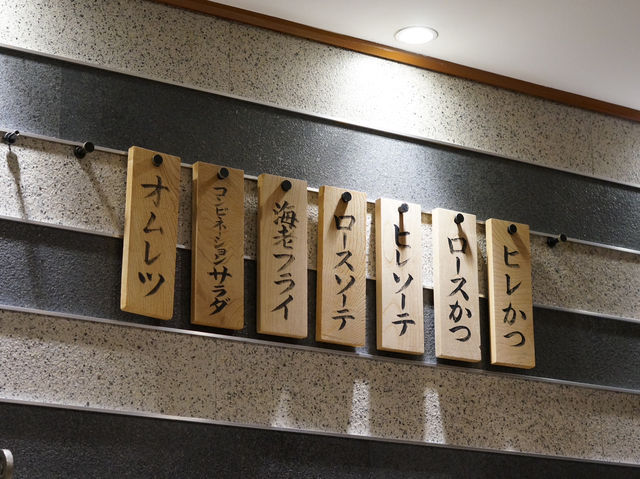 ヒレかつ
ロースかつ
ヒレソーテ
ロースソーテ
海老フライ
コンビネーションサラダ
オムレツ